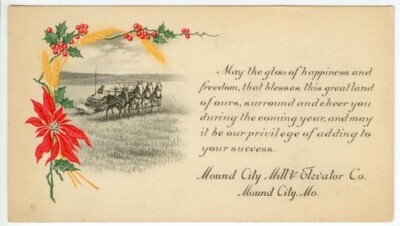 May the glow of happiness and
freedom, that blesses this great land
of ours, surround and cheer you
during the coming year, and may
it be our privilege of adding to
your success.
Mound City Mill & Elevator Co.
Mound City, Mo.